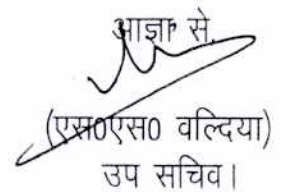 आज्ञा से,
(एस0एस0 वल्दिया)
उप सचिव।